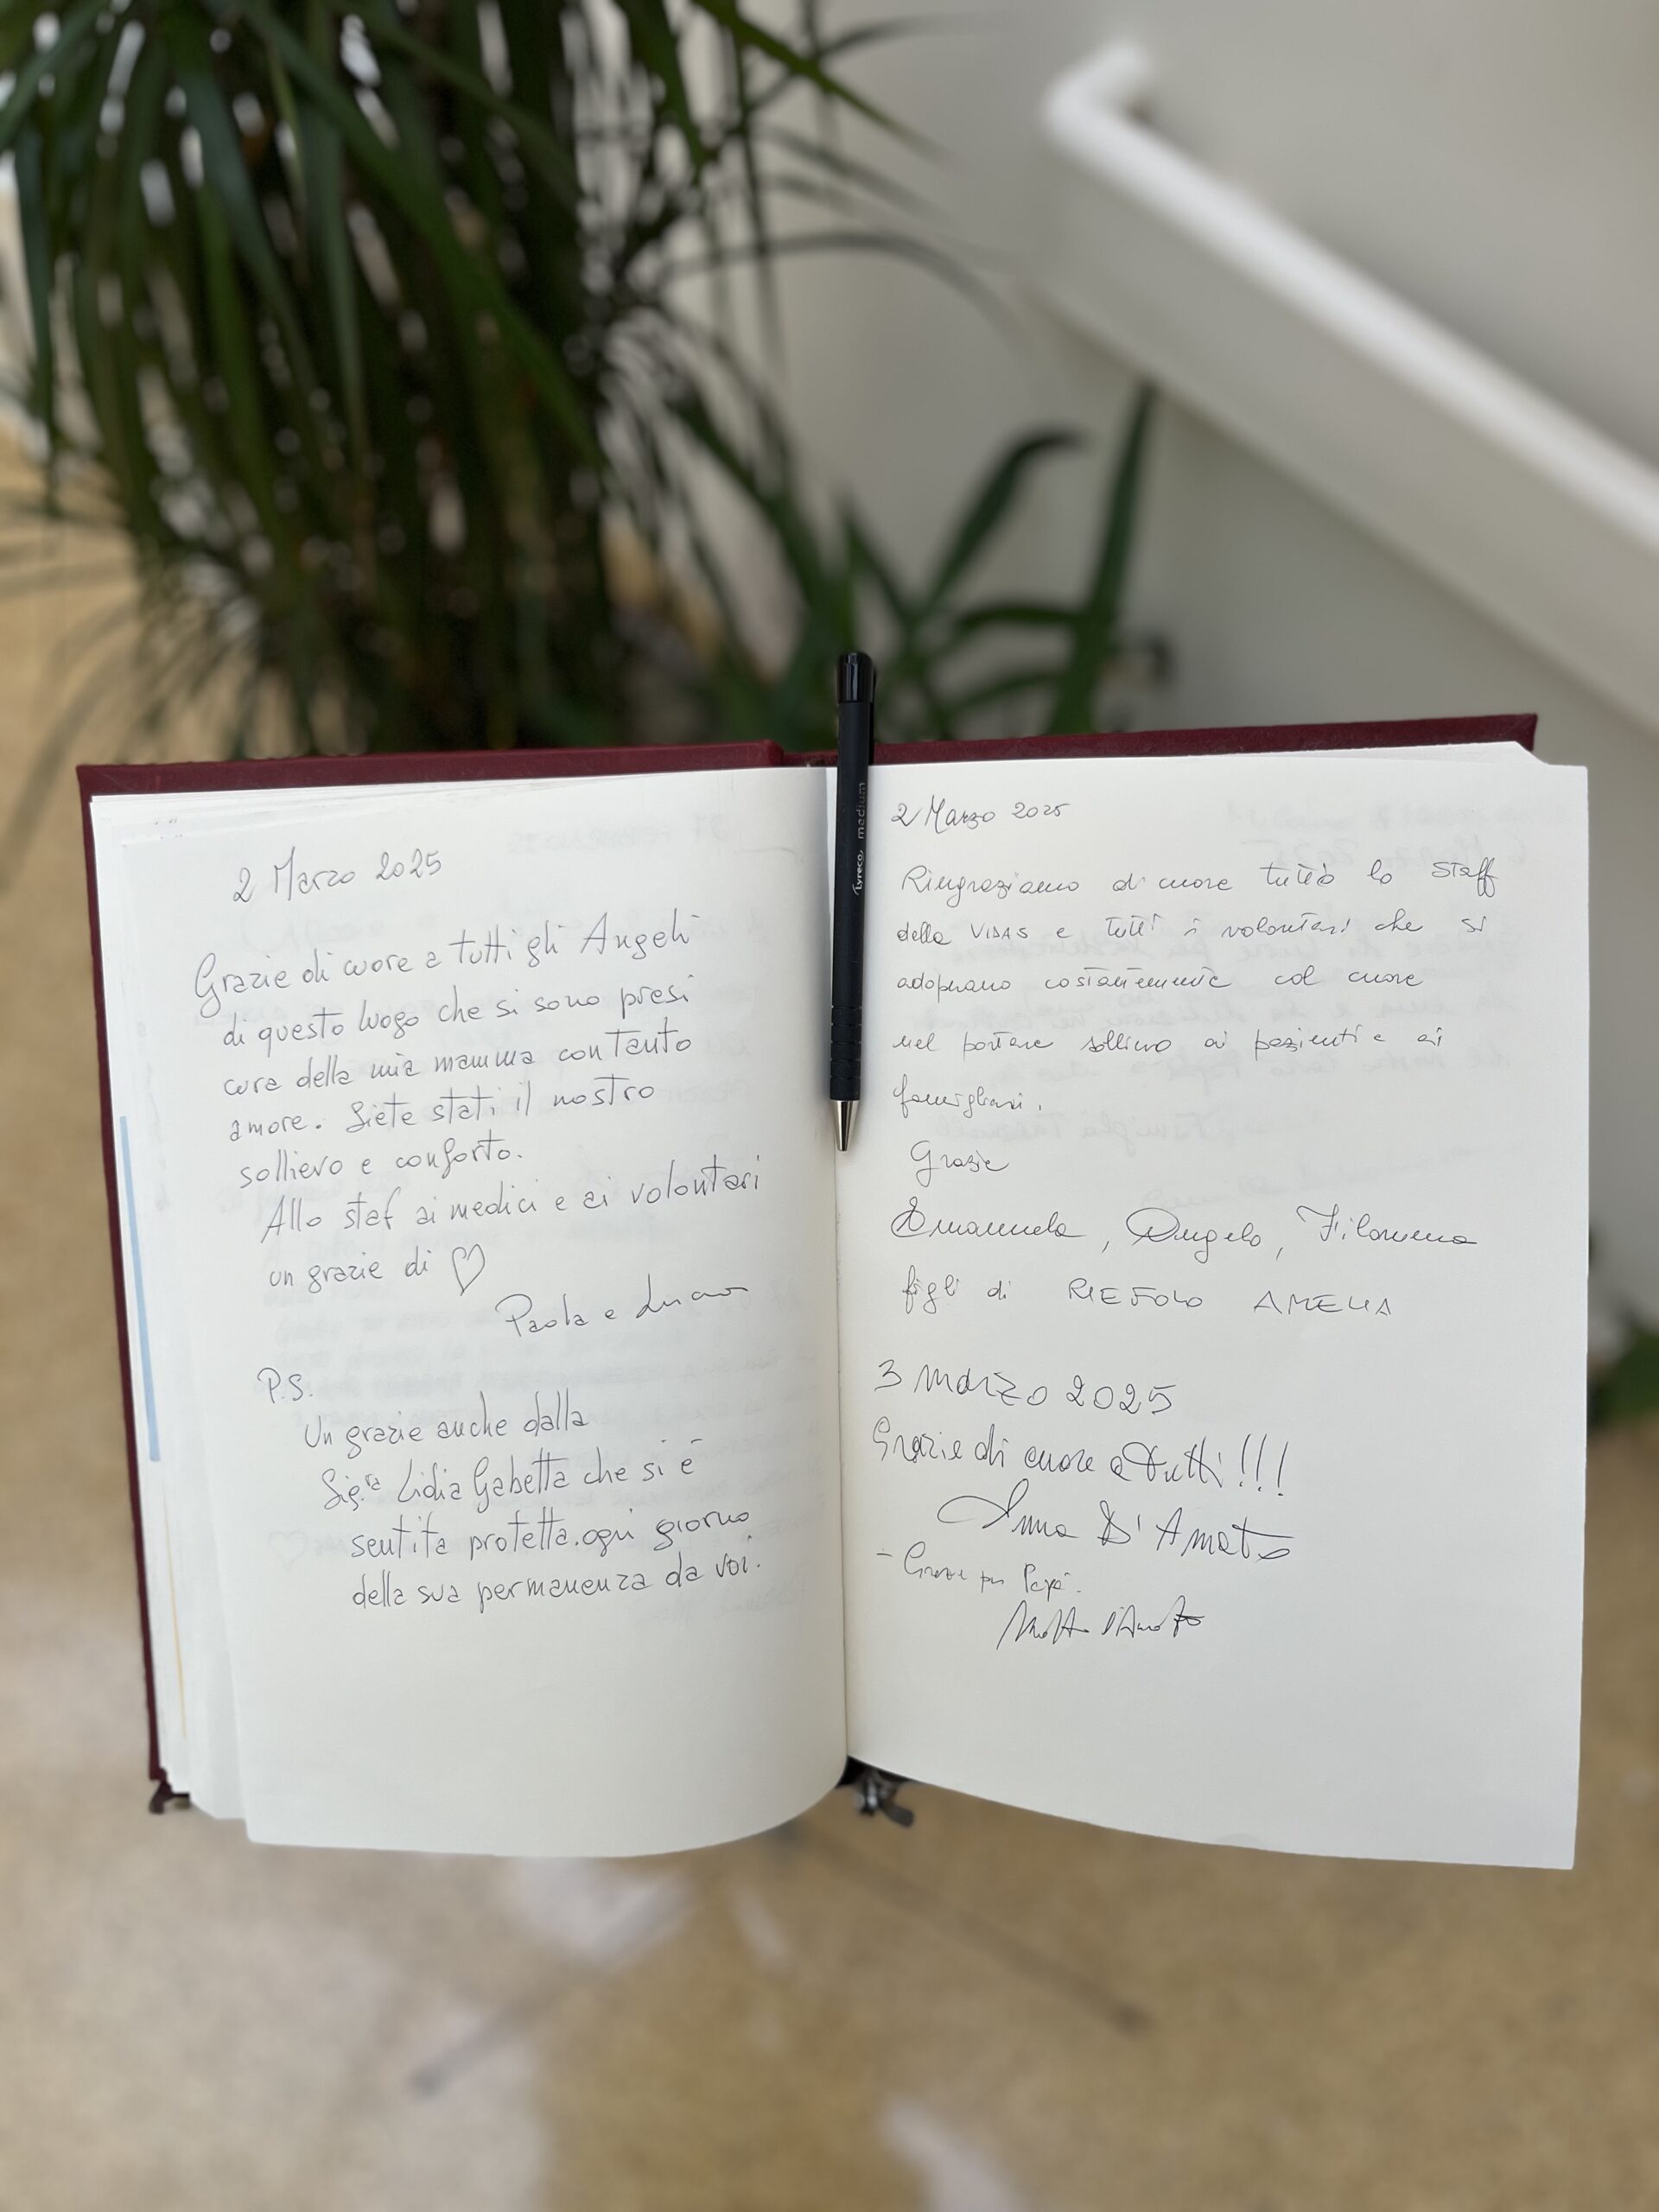 2 Marzo 2025
Grazie di cuore a tutti gli Angeli
di questo luogo che si sono presi
cura della mia mamma con tanto
amore. Siete stati il nostro
sollievo e conforto.
Allo staf ai medici e ai volontari
un grazie di ♡
Paola e
P.S.
Un grazie anche dalla
Sig.ra Lidia Gabetta che si è
sentita protetta ogni giorno
della sua permanenza da voi.
Lyreco medium
2 Marzo 2025
Ringraziamo di cuore tutto lo staff
della VIDAS e tutti i volontari che si
adoperano costantemente col cuore
nel portare sollievo ai pazienti e ai
famigliari.
Grazie
Emanuela, Angelo, Filomena
figli di AMELIA
3 marzo 2025
Grazie di cuore a tutti!!!
Anna D'Amato
- Grazie per Papà.
D'Amato